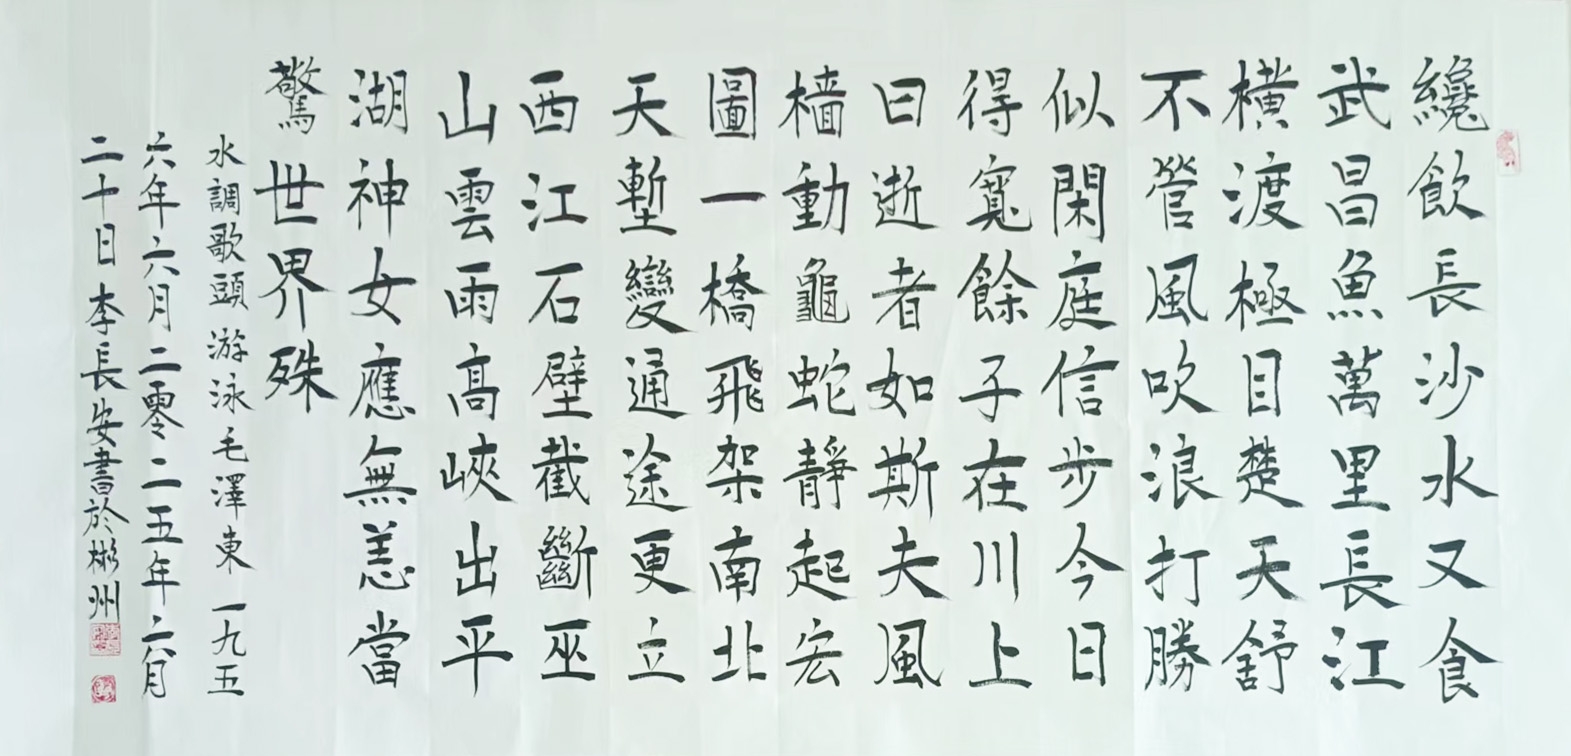 纔飲長沙水又食
武昌魚萬里長江
橫渡極目楚天舒
不管風吹浪打勝
似閑庭信步今日
得寬餘子在川上
曰逝者如斯夫風
檣動龜蛇靜起宏
圖一橋飛架南北
天塹變通途更立
西江石壁截斷巫
山雲雨高峽出平
湖神女應無恙當
驚世界殊
水調歌頭游泳毛澤東一九五
六年六月二零二五年六月
二十日李長安書於彬州